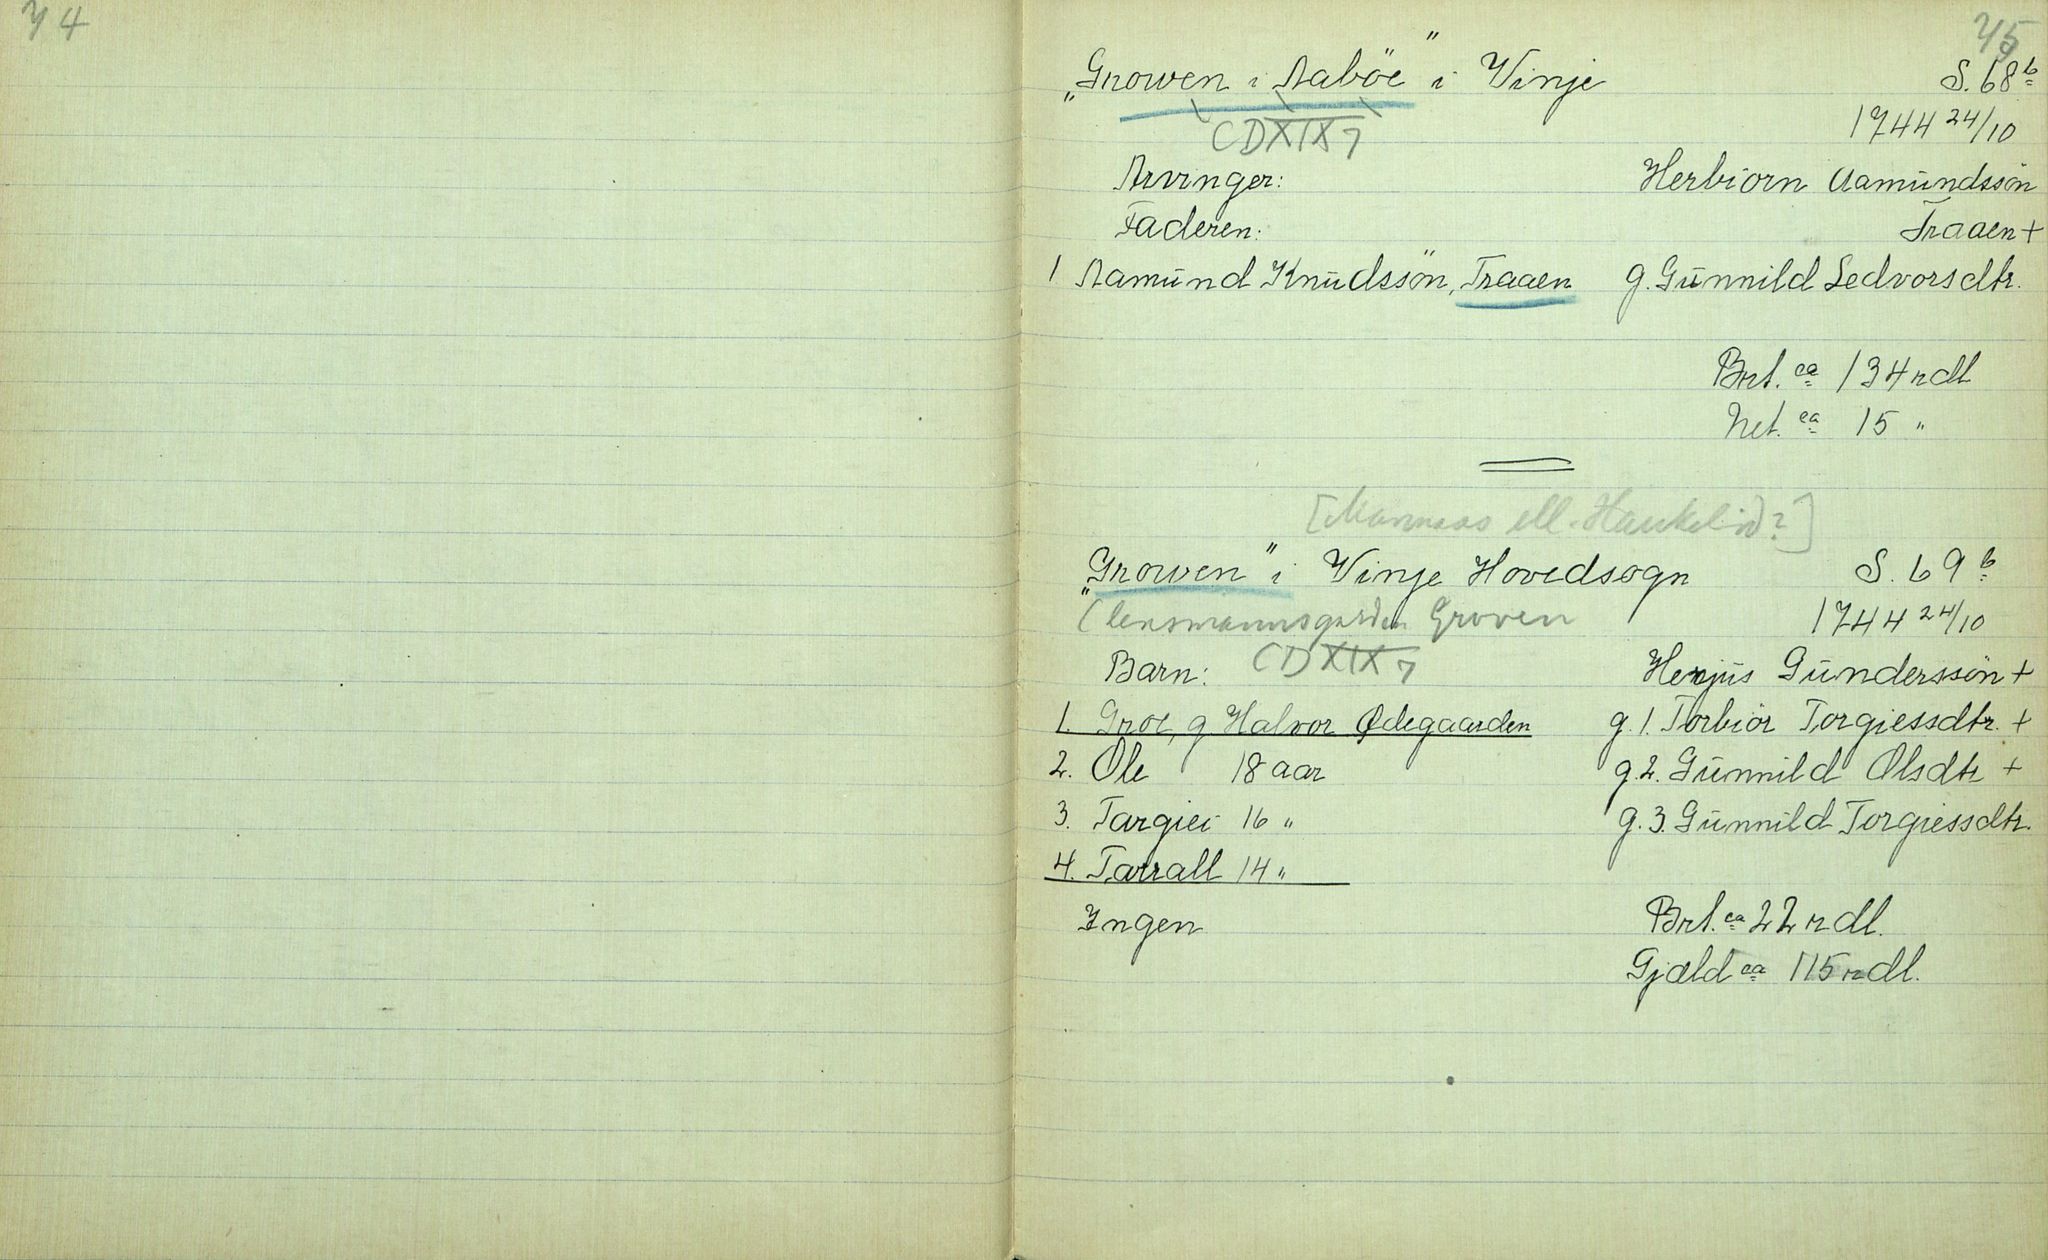 74
75
„Growen i Aaböe" i Vinje S. 68b
CDXIX7 1744 24/10
Arvinger: Herbiorn Aamundssön
Faderen: Traaen +
1 Aamund Knudssön, Traaen g. Gunnild Ledvorsdtr.
Brt. ca 134 rdl
Net. ca 15 "
[Mannaas ell. Haukelid?]
„Growen" i Vinje Hovedsogn S. 69b
(lensmannsgarden Groven 1744 24/10
Barn: CDXIX7 Henjus Gunderssön +
1. Groe, g Halvor Ødegaarden g. 1. Torbiör Torgiessdtr. +
2. Ole 18 aar g. 2. Gunnild Olsdtr +
3. Targiei 16 " g. 3. Gunnild Torgiessdtr.
4. Tarrall 14 "
Ingen Brt. ca 22 rdl.
Gjæld ca 115 rdl.